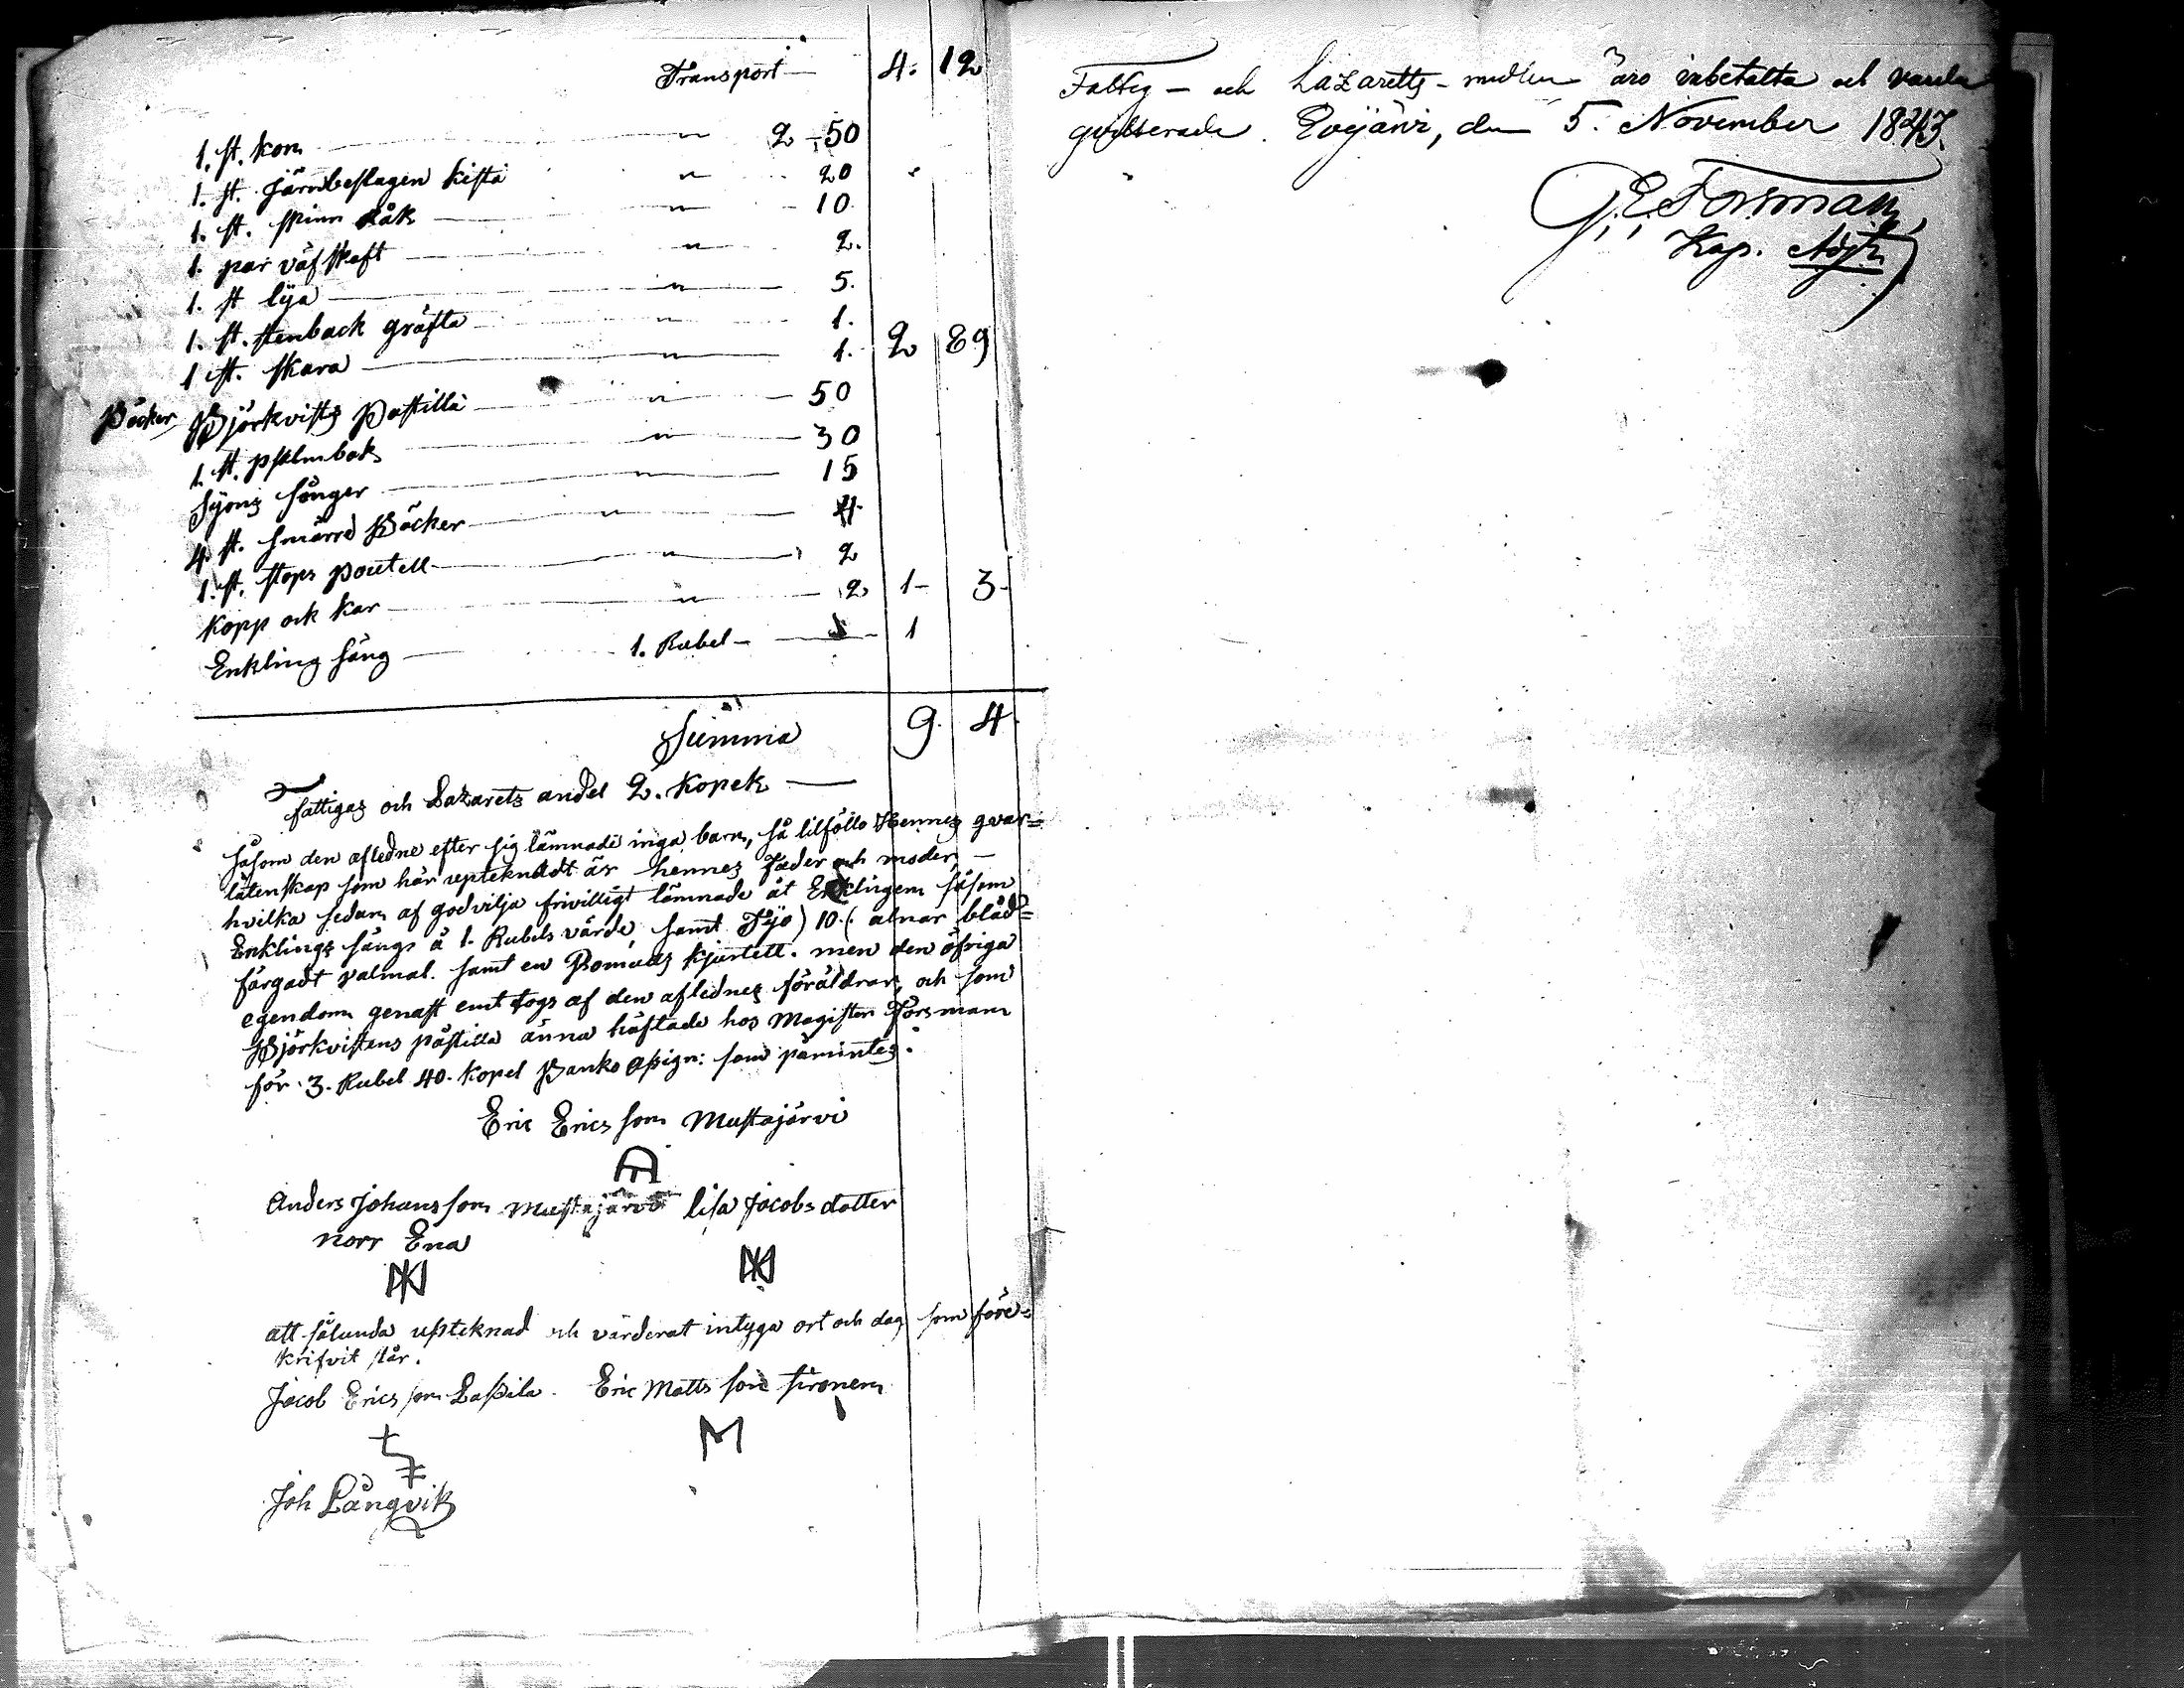 Transport — 4. 12
1. st. kon — " 2 - 50
1. st. järnbeslagen kista " 20
1. st. skinn såk — " - 10
1. par väf skeft — " 2.
1. st lija — " 5.
1. st. stenback gräfta — " 1.
1 st. skara — " 1. 2 89
Böcker Björkvists Postilla — " 50
1. st. psalmbok — " 30
Syons sånger — " 15
4. st. smärre Böcker — " 4.
1. st. stops boutell — " 2
kopp ock kar — " 2 1 - 3 -
Enkling säng — 1. Rubel — 1
Summa 9. 4
fattigas och Lazarets andel 2. kopek —
såsom den afledne efter sig lämnade inga barn, så tilföllo Hennes qvar=
låtenskap som här upteknadt är hennes Fader och moder, —
hvilka sedan af godvilja frivilligt lämnade åt Enklingen såsom
Enklings sängs à 1. Rubels värde, samt Tijo) 10. ( alnar blåd=
färgadt valmal. samt en Bomulls kjortell. men den öfriga
egendom genast emt togs af den aflednes föräldrar, och som
Björkvistens påstilla änna häftade hos Magister Forsman
för 3. Rubel 40. kopek Banko Assign: som påmintes.
Eric Erics son Mustajärvi
Anders Johans son Mustajärvi lisa Jacobs dotter
norr Ena
att sålunda upteknad och värderat intyga ort och dag som före=
skrifvit står.
Jacob Erics son Lassila. Eric Matts son Sironen
M
Joh Långvik
Fattig - och Lazaretts - medlen äro inbetalta och varda
qvitterade. Evijärvi, den 5. November 1843.
G. E. Forsman,
Kap. Adj.